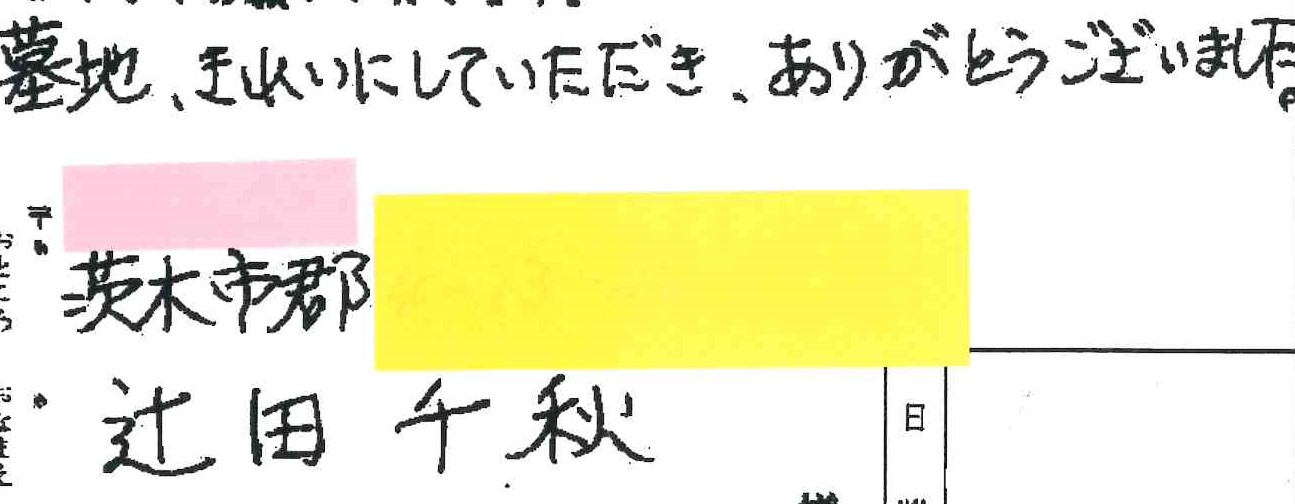 墓地、きれいにしていただき、ありがとうございました。
〒
茨木市郡
おところ
辻田千秋
おなまえ
日
様